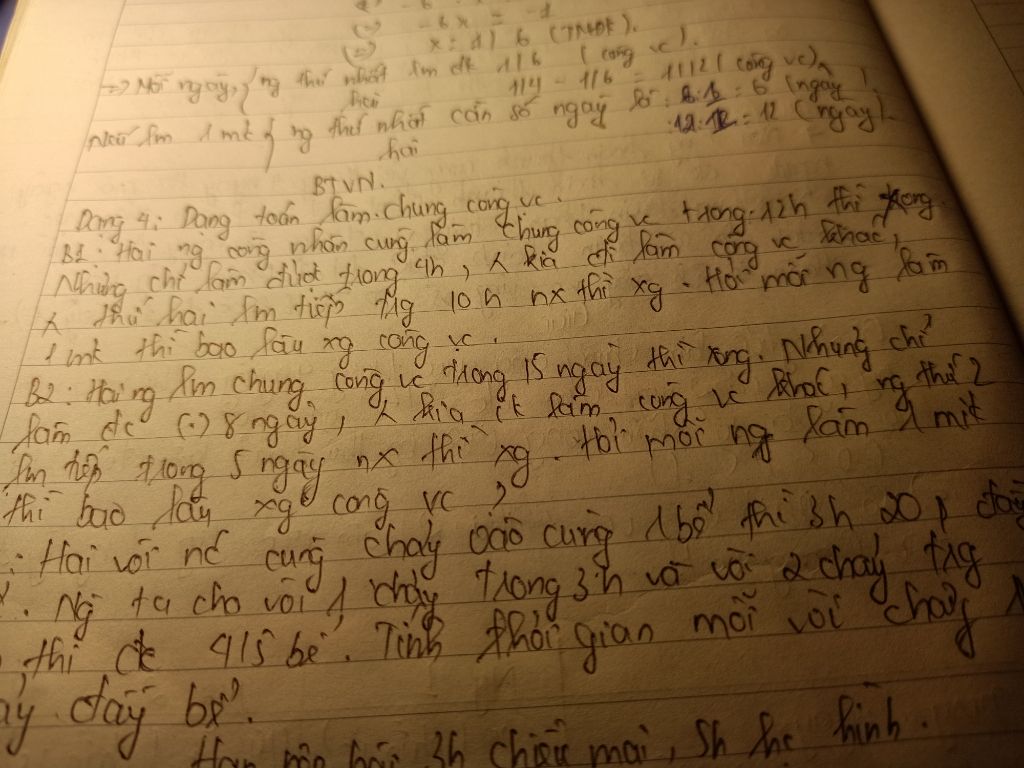 (=) -6x = -1
(=) x = 1/6 (TMĐK).
=> Mỗi ngày, ng thứ nhất lm đk 1/6 (công vc).
hai 1/4 - 1/6 = 1/12 (công vc)
Nếu lm 1 mk ng thứ nhất cần số ngày là: = 6 (ngày)
hai = 12 (ngày).
BTVN.
Dạng 4: Dạng toán làm chung công vc.
B1: Hai ng công nhân cùng làm chung công vc trong 12h thì xong.
Nhưng chỉ làm được trong 4h, kia đi làm công vc khác,
thứ hai lm tiếp trg 10h nx thì xg. Hỏi mỗi ng làm
1 mk thì bao lâu xg công vc.
B2: Hai ng lm chung công vc trong 15 ngày thì xong. Nhưng chỉ
làm đc (.) 8 ngày, kia làm công vc khác, ng thứ 2
lm tiếp trong 5 ngày nx thì xg. Hỏi mỗi ng làm 1 mik
thì bao lâu xg công vc ?
: Hai vòi nc cùng chảy vào cùng 1 bể thì 3h 20p đầy
. Ng ta cho vòi 1 chảy trong 3h và vòi 2 chảy trg
, thì đc 4/5 bể. Tính thời gian mỗi vòi chảy 1
đầy bể.
3h chiều mai, 5h hc hình.